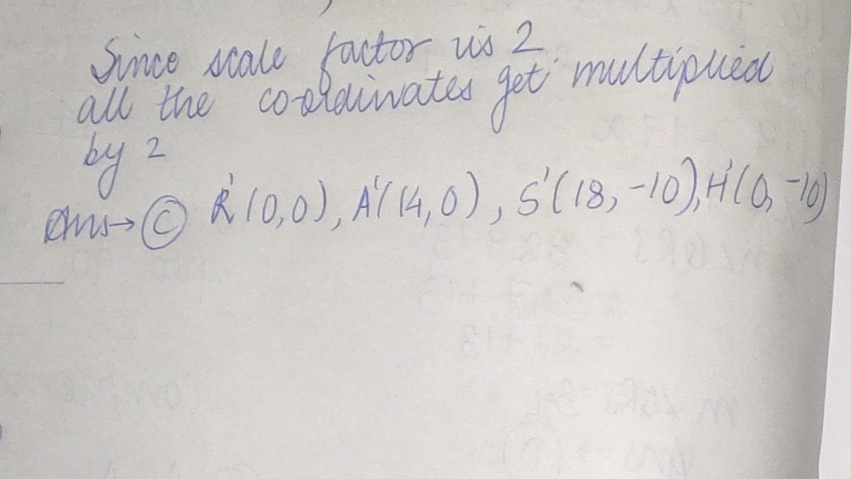 Since scale factor is 2
all the co-ordinates get multiplied
by 2
Ans→ (C) R'(0,0), A'(4,0), S'(18,-10), H'(0,-10)